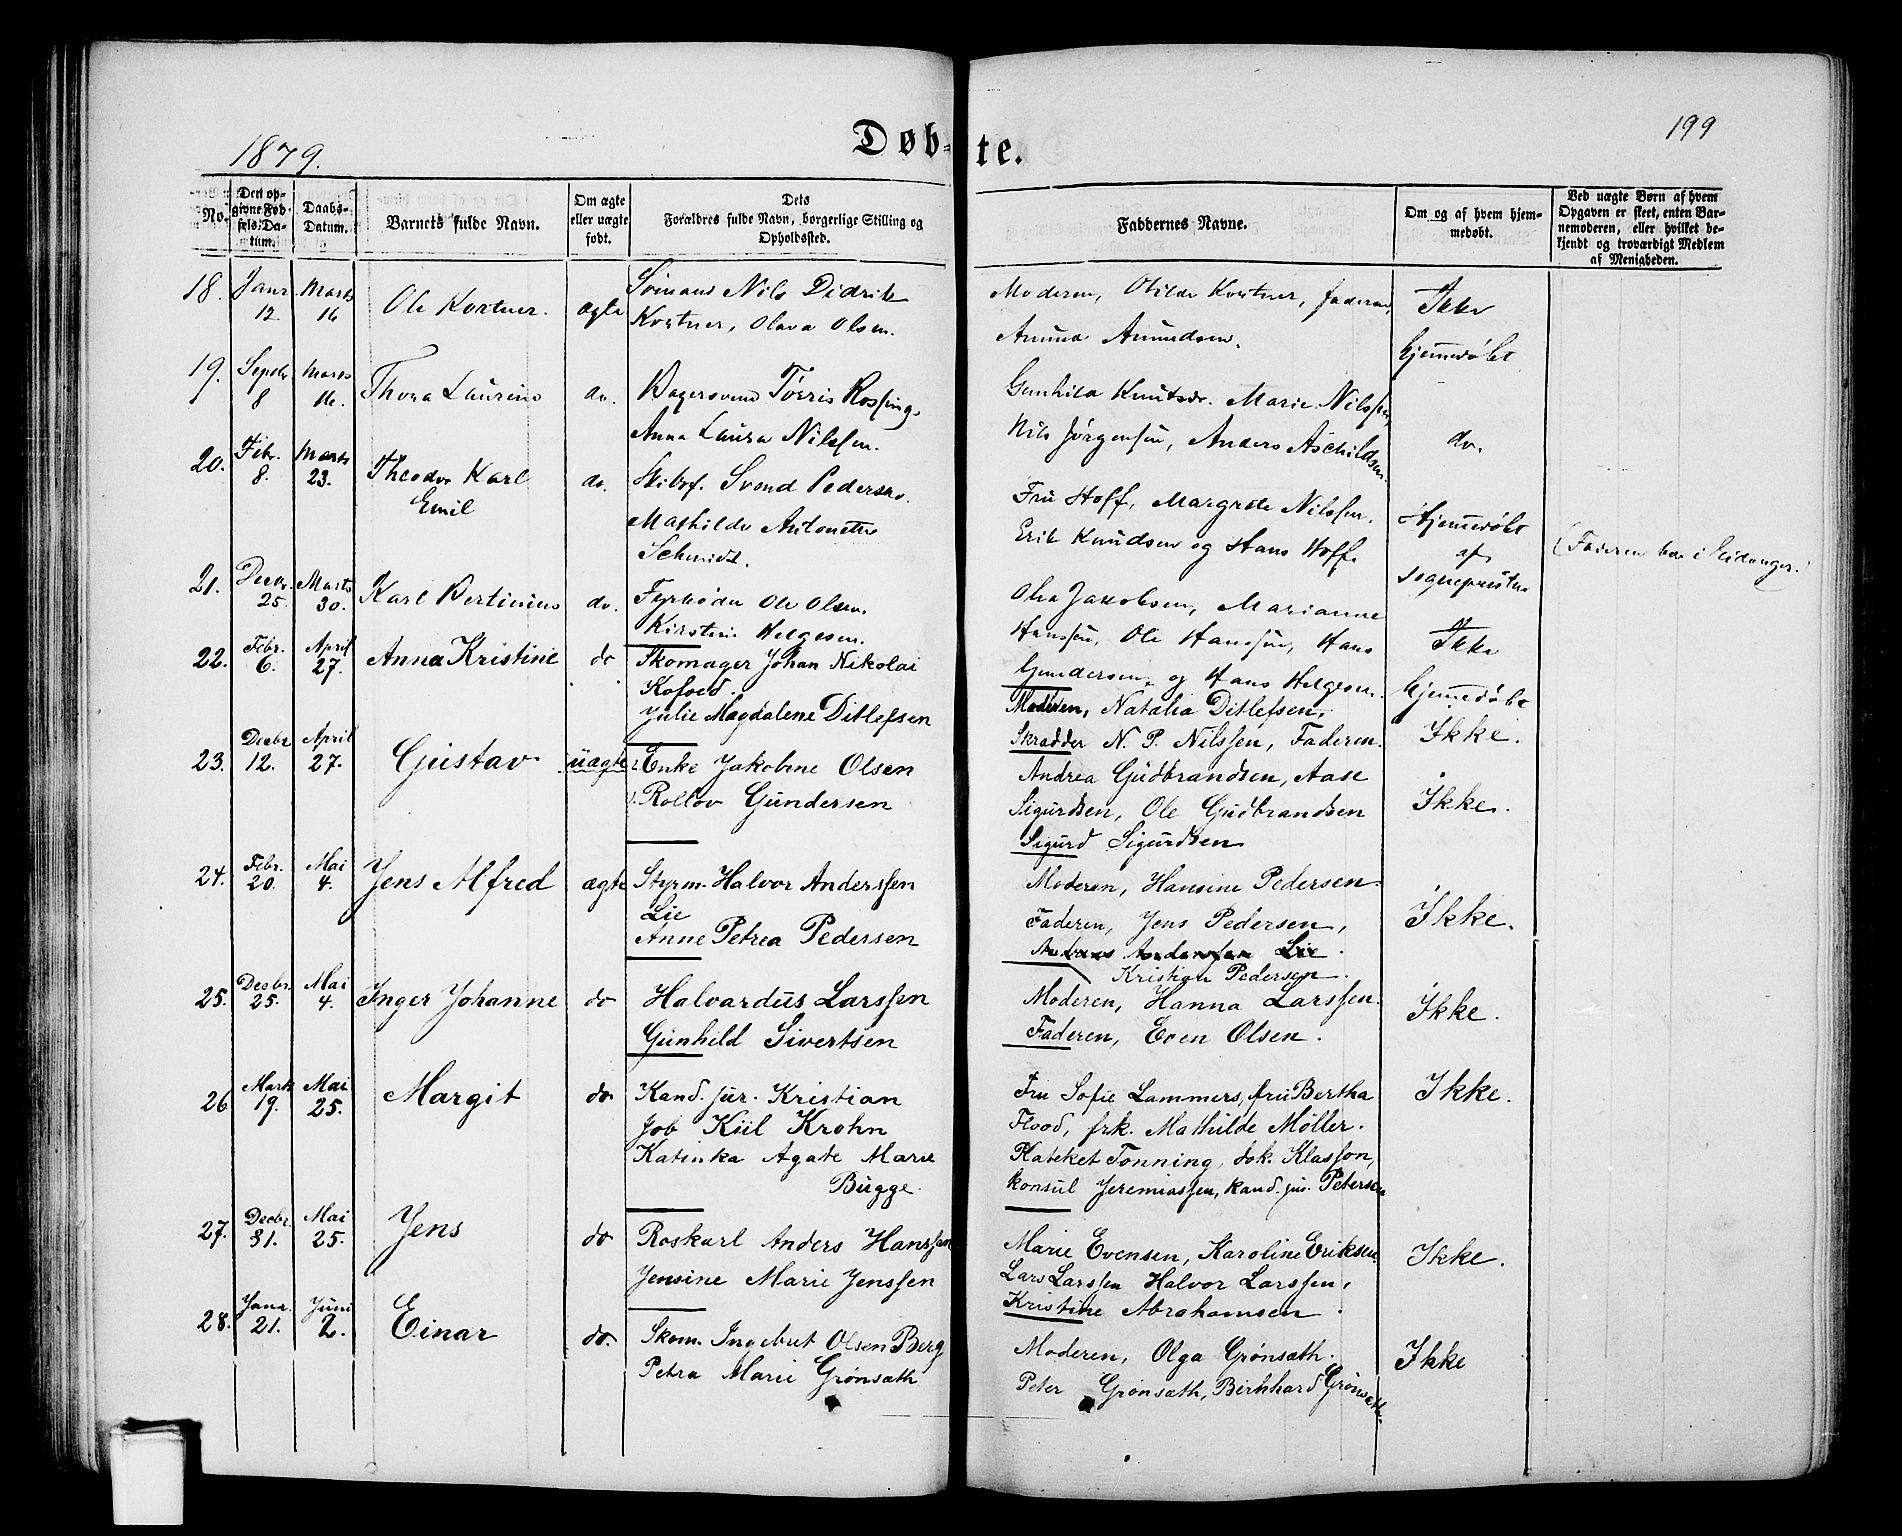 1879.
Døbte.
199
No.
Den opgivne Fødsels-Datum.
Daabs-Datum.
Barnets fulde Navn.
Om ægte eller uægte født.
Dets Forældres fulde Navn, borgerlige Stilling og Opholdssted.
Faddernes Navne.
Om og af hvem hjemmedøbt.
Ved uægte Børn af hvem Opgaven er skeet, enten Barnemoderen, eller hvilket bekjendt og troværdigt Medlem af Menigheden.
18. Janr 12. Marts 16 Ole Kortner. ægte Sømand Nils Didrik
Kortner, Olava Olsen.
Moderen, Otilde Kortner, faderen,
Amund Amundsen.
Ikke
hjemmedøbt
19. Septbr 8 Marts 16. Thora Laurine do. Bagersvend Tørris Rossing.
Anna Laura Nilssen.
Gunhild Knutsdr. Marie Nilssen,
Nils Jørgenssen, Anders Aschildsen.
do.
20. Febr. 8. Marts 23. Theodor Karl
Emil
do. Skibsf. Svend Pedersen.
Mathilde Antonette
Schmidt.
Fru Hoff, Margrete Nilssen.
Erik Knudsen og Hans Hoff.
Hjemmedøbt
af
Sognepresten
(Faderen bor i Eidanger.)
21. Decbr. 25. Marts 30. Karl Bertinius do. Fyrbøder Ole Olsen.
Kirstine Helgesen.
Olea Jakobsen, Marianne
Hanssen, Ole Hanssen, Hans
Gundersen og Hans Helgesen.
Ikke
hjemmedøbt
22. Febr. 6. April 27. Anna Kristine do Skomager Johan Nikolai
Kofoed.
Julie Magdalene Ditlefsen
Moderen, Natalia Ditlefsen,
Skrædder N. P. Nilssen, Faderen.
Ikke.
23. Decbr 12. April 27. Gustav uægte 2 Enke Jakobine Olsen
1. Rollov Gundersen
Andrea Gudbrandsen, Aase
Sigurdsen, Ole Gudbrandsen
Sigurd Sigurdsen
Ikke.
24. Febr. 20. Mai 4. Jens Alfred ægte Styrm. Halvor Anderssen
Lie
Anne Petrea Pedersen
Moderen, Hansine Pedersen.
Faderen, Jens Pedersen,
Anderssen Lie.
Kristian Pedersen.
Ikke.
25. Decbr. 25. Mai 4. Inger Johanne do Halvardus Larssen
Gunhild Sivertsen
Moderen, Hanna Larssen.
Faderen, Even Olsen.
Ikke.
26 Marts 19. Mai 25. Margit do Kand. jur. Kristian
Job Kiil Krohn
Katinka Agate Marie
Bugge.
Fru Sofie Lammers, fru Bertha
Flood, frk. Mathilde Møller.
Kateket Tonning, dok. Klasson,
Konsul Jeremiassen, kand. jur. Petersen
Ikke.
27. Decbr. 31. Mai 25. Jens do Roskarl Anders Hanssen
Jensine Marie Jenssen
Marie Evensen, Karoline Eriksen.
Lars Larssen Halvor Larssen,
Kristine Abrahamsen.
Ikke.
28. Janr. 21. Juni 2. Einar do. Skom. Ingebret Olsen Berg
Petra Marie Grønsæth
Moderen, Olga Grønsæth.
Peter Grønsæth, Birkhard Grønsæth.
Ikke